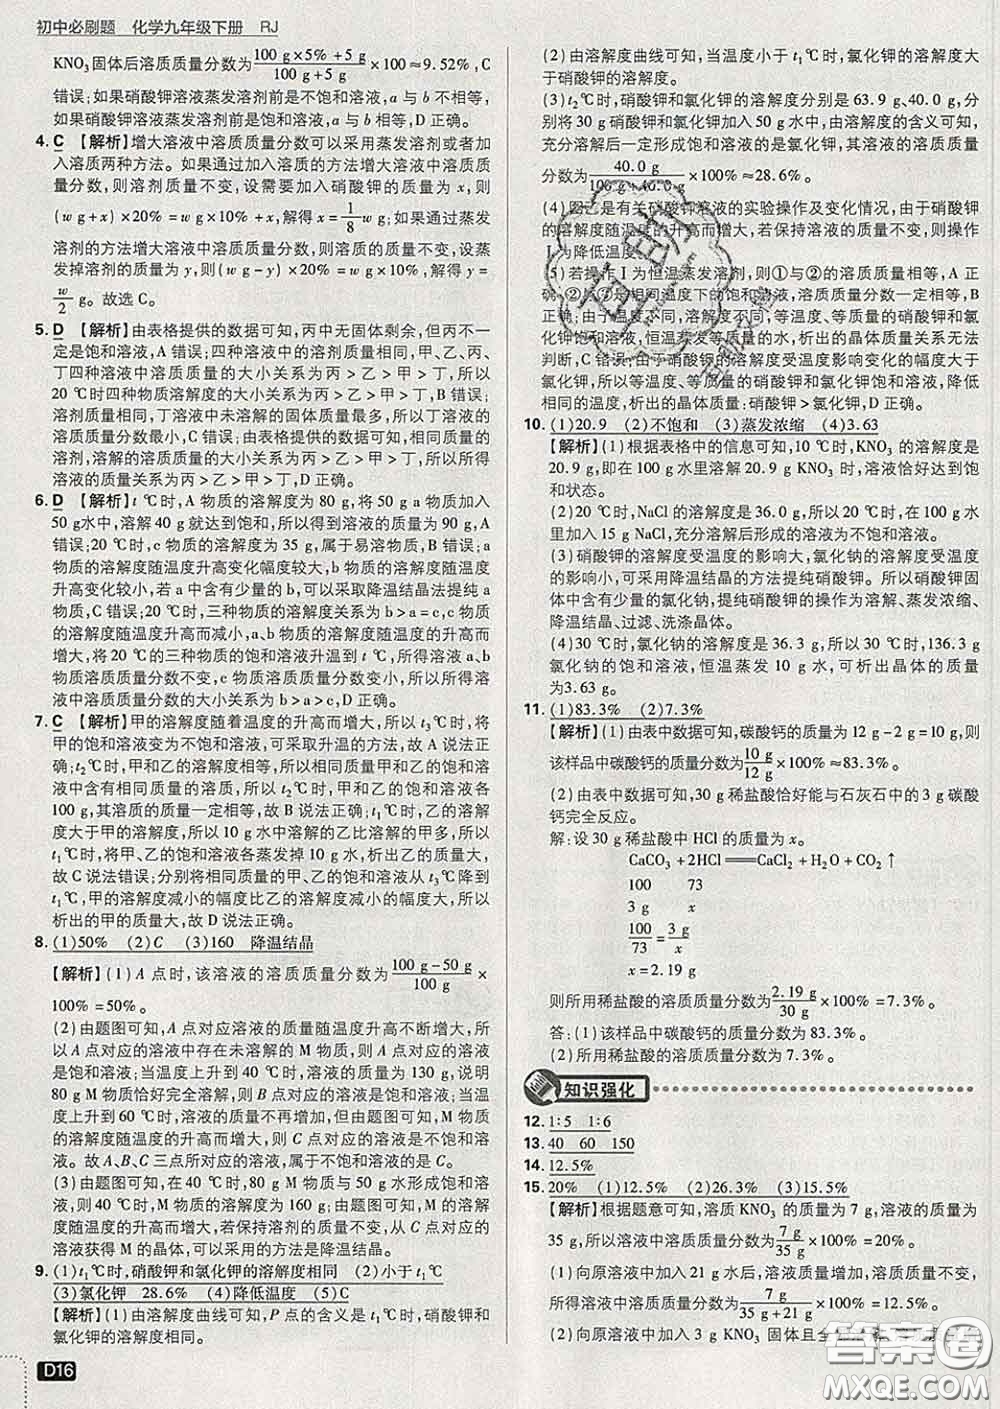 初中必刷题 化学九年级下册 RJ
KNO₃固体后溶质质量分数为(100 g×5%+5 g)/(100 g+5 g)×100≈9.52%,C
错误;如果硝酸钾溶液蒸发溶剂前是不饱和溶液,a 与 b 不相等,
如果硝酸钾溶液蒸发溶剂前是饱和溶液,a 与 b 相等,D 正确。
4. C 【解析】增大溶液中溶质质量分数可以采用蒸发溶剂或者加
入溶质两种方法。如果通过加入溶质的方法增大溶液中溶质质
量分数,则溶剂质量不变,设需要加入硝酸钾的质量为 x,则
(w g+x)×20%=w g×10%+x,解得 x=1/8 w g;如果通过蒸发
溶剂的方法增大溶液中溶质质量分数,则溶质的质量不变,设蒸
发掉溶剂的质量为 y,则(w g-y)×20%=w g×10%,解得 y=
w/2 g。故选 C。
5. D 【解析】由表格提供的数据可知,丙中无固体剩余,但丙不一
定是饱和溶液,A 错误;四种溶液中的溶剂质量相同,甲、乙、丙、
丁四种溶质质量的大小关系为丙>乙>甲>丁,所以
20 ℃时四种物质溶解度的大小关系为丙>乙>甲>丁,B 错误;
溶剂质量相同,丁溶液中未溶解的固体质量最多,所以丁溶液的
溶质质量分数最小,C 错误;由表格提供的数据可知,相同质量的
溶剂中,溶解的溶质质量的大小关系为丙>乙>甲>丁,所得溶
液的溶质的质量为丙>乙>甲>丁,D 正确。
6. D 【解析】t ℃时,A 物质的溶解度为 80 g,将 50 g a 物质加入
50 g水中,溶解 40 g 就达到饱和,所以得到溶液的质量为 90 g,A
错误;20 ℃时,c 物质的溶解度为 35 g,属于易溶物质,B 错误;a
物质的溶解度随温度升高变化幅度较大,b 物质的溶解度随温度
升高变化幅度较小,若 a 中含有少量的 b,可以采取降温结晶法提
纯 a,C 错误;20 ℃时,三种物质的溶解度关系为 b>a=c,c 物质
的溶解度随温度升高而减小,a、b 物质的溶解度随温度的升高而
增大,将 20 ℃的三种物质的饱和溶液升温到 t ℃,所得溶液 a、b
物质溶质质量分数不变,c 物质的溶质质量分数变小,所得溶
液中溶质质量分数的大小关系为 b>a>c,D 正确。
7. C 【解析】甲的溶解度随着温度的升高而增大,所以 t₃℃时,将
甲的饱和溶液变为不饱和溶液,可采取升温的方法,故 A 说法正
确;t₂℃时,甲和乙的溶解度相同,所以相同质量甲和乙的饱和溶
液中含有相同质量的溶质,所以 t₂℃时,甲和乙的饱和溶液各
100 g,其溶质的质量一定相等,故 B 说法正确;t₁℃时,乙的溶解
度大于甲的溶解度,所以 10 g 水中溶解的乙比溶解的甲多,所以
t₁℃时,将甲、乙的饱和溶液各蒸发掉 10 g 水,析出的乙比甲多,
故 C 说法错误;分别将相同质量的甲、乙饱和溶液从 t₃℃降温至
t₂℃时,甲溶解度减小的幅度比乙溶解度减小的幅度大,所以
析出的甲的质量大,故 D 说法正确。
8. (1)50% (2)C (3)160 降温结晶
【解析】(1)A 点时,该溶液的溶质质量分数为(100 g-50 g)/(100 g)×
100%=50%。
(2)由题图可知,A 点对应溶液的质量随温度升高不断增大,所
以 A 点对应的溶液中存在未溶解的 M 物质,属于饱和溶液;由题
图可知,当温度升高达到 B 点时,溶液的质量为 130 g,说明
80 g M 物质恰好完全溶解,所以 B 点对应的溶液为饱和溶液;当
温度继续升高,溶液的质量不再增加,但由题图可知,M 物质
的溶解度随温度的升高而增大,所以 C 点对应的溶液为不饱和溶
液。故 A、B、C 三点对应的溶液,属于不饱和溶液的是 C。
(3)由题图可知,在 40 ℃时,80 g M 与 50 g 水形成饱和溶液,所
以 40 ℃时,M 物质的溶解度为 160 g;由题图可知,M 的溶解度
随温度的升高而增大,若保持溶剂的质量不变,从 C 点对应的
溶液获得 M 的晶体,可以采用的方法是降温结晶。
9. (1)t₁℃时,硝酸钾和氯化钾的溶解度相同 (2)小于 t₁℃
(3)氯化钾 28.6% (4)降低温度 (5)C
【解析】(1)由溶解度曲线可知,P 点的含义是 t₁℃时,硝酸钾和
氯化钾的溶解度相同。
D16
(2)由溶解度曲线可知,当温度小于 t₁℃时,氯化钾的溶解度大
于硝酸钾的溶解度。
(3)t₂℃时,硝酸钾和氯化钾的溶解度分别是 63.9 g、40.0 g,分
别将 30 g 硝酸钾和氯化钾加入 50 g 水中,由溶解度的含义可知,
充分溶解后一定形成饱和溶液的是氯化钾,其溶液的溶质质量
分数为(40.0 g)/(100 g+40.0 g)×100%≈28.6%。
(4)图乙是有关硝酸钾溶液的实验操作及变化情况,由于硝酸钾
的溶解度随温度的升高而增大,若保持溶液的质量不变,则操作
Ⅰ为降低温度。
(5)若操作Ⅰ为恒温蒸发溶剂,则①与②的溶液溶质相同,A 正
确;②与③是相同温度下的饱和溶液,溶质质量分数一定相等,B
正确;由于溶解度不同,等温度、等质量的硝酸钾饱和溶液和氯
化钾饱和溶液,恒温蒸发溶剂,析出的晶体质量关系无法
判断,C 错误;由于硝酸钾的溶解度受温度影响变化的幅度大于
氯化钾,所以等温度、等质量的硝酸钾和氯化钾饱和溶液,降低
相同的温度,析出的晶体质量:硝酸钾>氯化钾,D 正确。
10. (1)20.9 (2)不饱和 (3)蒸发浓缩 (4)3.63
【解析】(1)根据表格中的信息可知,10 ℃时,KNO₃ 的溶解度是
20.9 g,即在 100 g 水里溶解 20.9 g KNO₃ 时,溶液恰好达到饱
和状态。
(2)20 ℃时,NaCl 的溶解度是 36.0 g,所以 20 ℃时,在 100 g 水
里加入 15 g NaCl,充分溶解后形成的溶液为不饱和溶液。
(3)硝酸钾的溶解度受温度的影响大,氯化钠的溶解度受温度
的影响小,可采用降温结晶的方法提纯硝酸钾。所以硝酸钾固
体中含有少量的氯化钠,提纯硝酸钾的操作为溶解、蒸发浓缩、
降温结晶、过滤、洗涤晶体。
(4)30 ℃时,氯化钠的溶解度是 36.3 g,所以 30 ℃时,136.3 g
氯化钠的饱和溶液,恒温蒸发 10 g 水,可析出晶体的质量
为3.63 g。
11. (1)83.3% (2)7.3%
【解析】(1)由表中数据可知,碳酸钙的质量为 12 g-2 g=10 g,则
该样品中碳酸钙的质量分数为(10 g)/(12 g)×100%≈83.3%。
(2)由表中数据可知,30 g 稀盐酸恰好能与石灰石中的 3 g 碳酸
钙完全反应。
解:设 30 g 稀盐酸中 HCl 的质量为 x。
CaCO₃+2HCl══CaCl₂+H₂O+CO₂↑
100 73
3 g x
100/73=3 g/x
x=2.19 g
则所用稀盐酸的溶质质量分数为(2.19 g)/(30 g)×100%=7.3%。
答:(1)该样品中碳酸钙的质量分数为 83.3%。
(2)所用稀盐酸的溶质质量分数为 7.3%。
知识强化
12. 1:5 1:6
13. 40 60 150
14. 12.5%
15. 20% (1)12.5% (2)26.3% (3)15.5%
【解析】根据题意可知,溶质 KNO₃ 的质量为 7 g,溶液的质量为
35 g,所以溶液中溶质质量分数为(7 g)/(35 g)×100%=20%。
(1)向原溶液中加入 21 g 水后,溶液质量增加,溶质质量不变,
所得溶液中溶质质量分数为(7 g)/(35 g+21 g)×100%=12.5%。
(2)向原溶液中加入 3 g KNO₃ 固体且全
答案圈
MXQE.COM